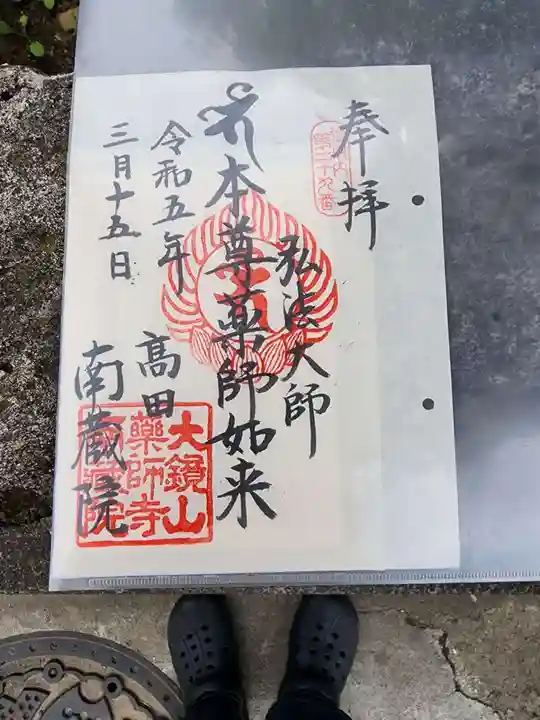 奉拝
第二十九番
弘法大師
本尊薬師如来
令和五年
三月十五日
高田
南蔵院
大鏡山
薬師寺
南蔵院